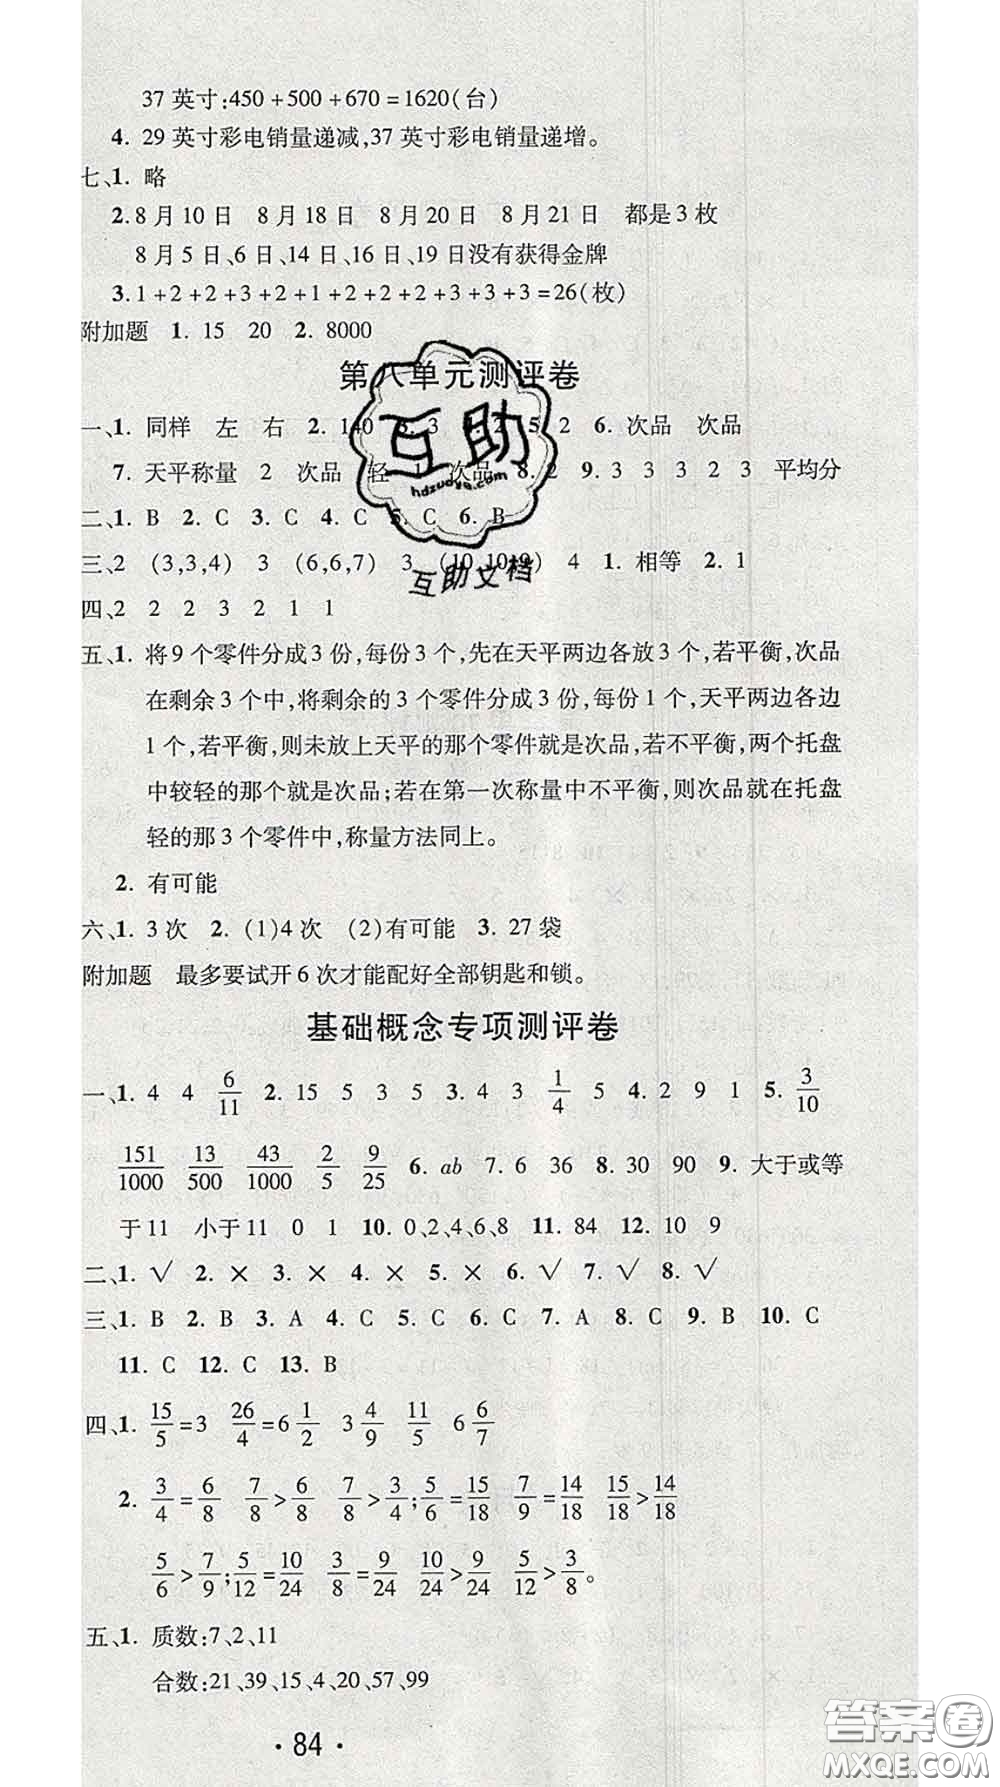 37 英寸:450+500+670=1620(台)
4. 29 英寸彩电销量递减,37 英寸彩电销量递增。
七、1. 略
2. 8 月 10 日 8 月 18 日 8 月 20 日 8 月 21 日 都是 3 枚
8 月 5 日、6 日、14 日、16 日、19 日没有获得金牌
3. 1+2+2+3+2+1+2+2+2+3+3+3=26(枚)
附加题 1. 15 20 2. 8000
第八单元测评卷
一、1. 同样 左 右 2. 140 3. 3 4. 2 5. 2 6. 次品 次品
7. 天平称量 2 次品 轻 1 次品 8. 2 9. 3 3 3 2 3 平均分
二、1. B 2. C 3. C 4. C 5. C 6. B
三、2 (3,3,4) 3 (6,6,7) 3 (10,10,9) 4 1. 相等 2. 1
四、2 2 2 3 2 1 1
五、1. 将 9 个零件分成 3 份,每份 3 个,先在天平两边各放 3 个,若平衡,次品
在剩余 3 个中,将剩余的 3 个零件分成 3 份,每份 1 个,天平两边各边
1 个,若平衡,则未放上天平的那个零件就是次品,若不平衡,两个托盘
中较轻的那个就是次品;若在第一次称量中不平衡,则次品就在托盘
轻的那 3 个零件中,称量方法同上。
2. 有可能
六、1. 3 次 2. (1)4 次 (2)有可能 3. 27 袋
附加题 最多要试开 6 次才能配好全部钥匙和锁。
基础概念专项测评卷
一、1. 4 4 6/11 2. 15 5 3 5 3. 4 3 1/4 5 4. 2 9 1 5. 3/10
151/1000 13/500 43/1000 2/5 9/25 6. ab 7. 6 36 8. 30 90 9. 大于或等
于 11 小于 11 0 1 10. 0、2、4、6、8 11. 84 12. 10 9
二、1. √ 2. × 3. × 4. × 5. × 6. √ 7. √ 8. √
三、1. B 2. B 3. A 4. C 5. C 6. C 7. A 8. C 9. B 10. C
11. C 12. C 13. B
四、1. 15/5=3 26/4=6 1/2 3 4/9 11/5 6 6/7
2. 3/4=6/8 7/8>6/8 7/8>3/4;5/6=15/18 7/9=14/18 15/18>14/18
5/6>7/9;5/12=10/24 3/8=9/24 10/24>9/24 5/12>3/8。
五、1. 质数:7、2、11
合数:21、39、15、4、20、57、99
· 84 ·
互助
hdzuoye.com
互助文档
答案卷
MXQE.COM